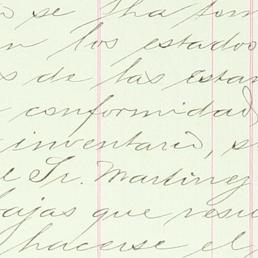 se ha tom
en los estados
s de las esta
conformidad
inventario, s
el Sr. Martinez
bajas que resu
hacerse el